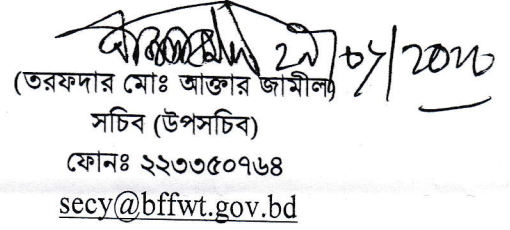 (তরফদার মোঃ আক্তার জামীল)
সচিব (উপসচিব)
ফোনঃ ২২৩৩৫০৭৬৪
secy@bffwt.gov.bd